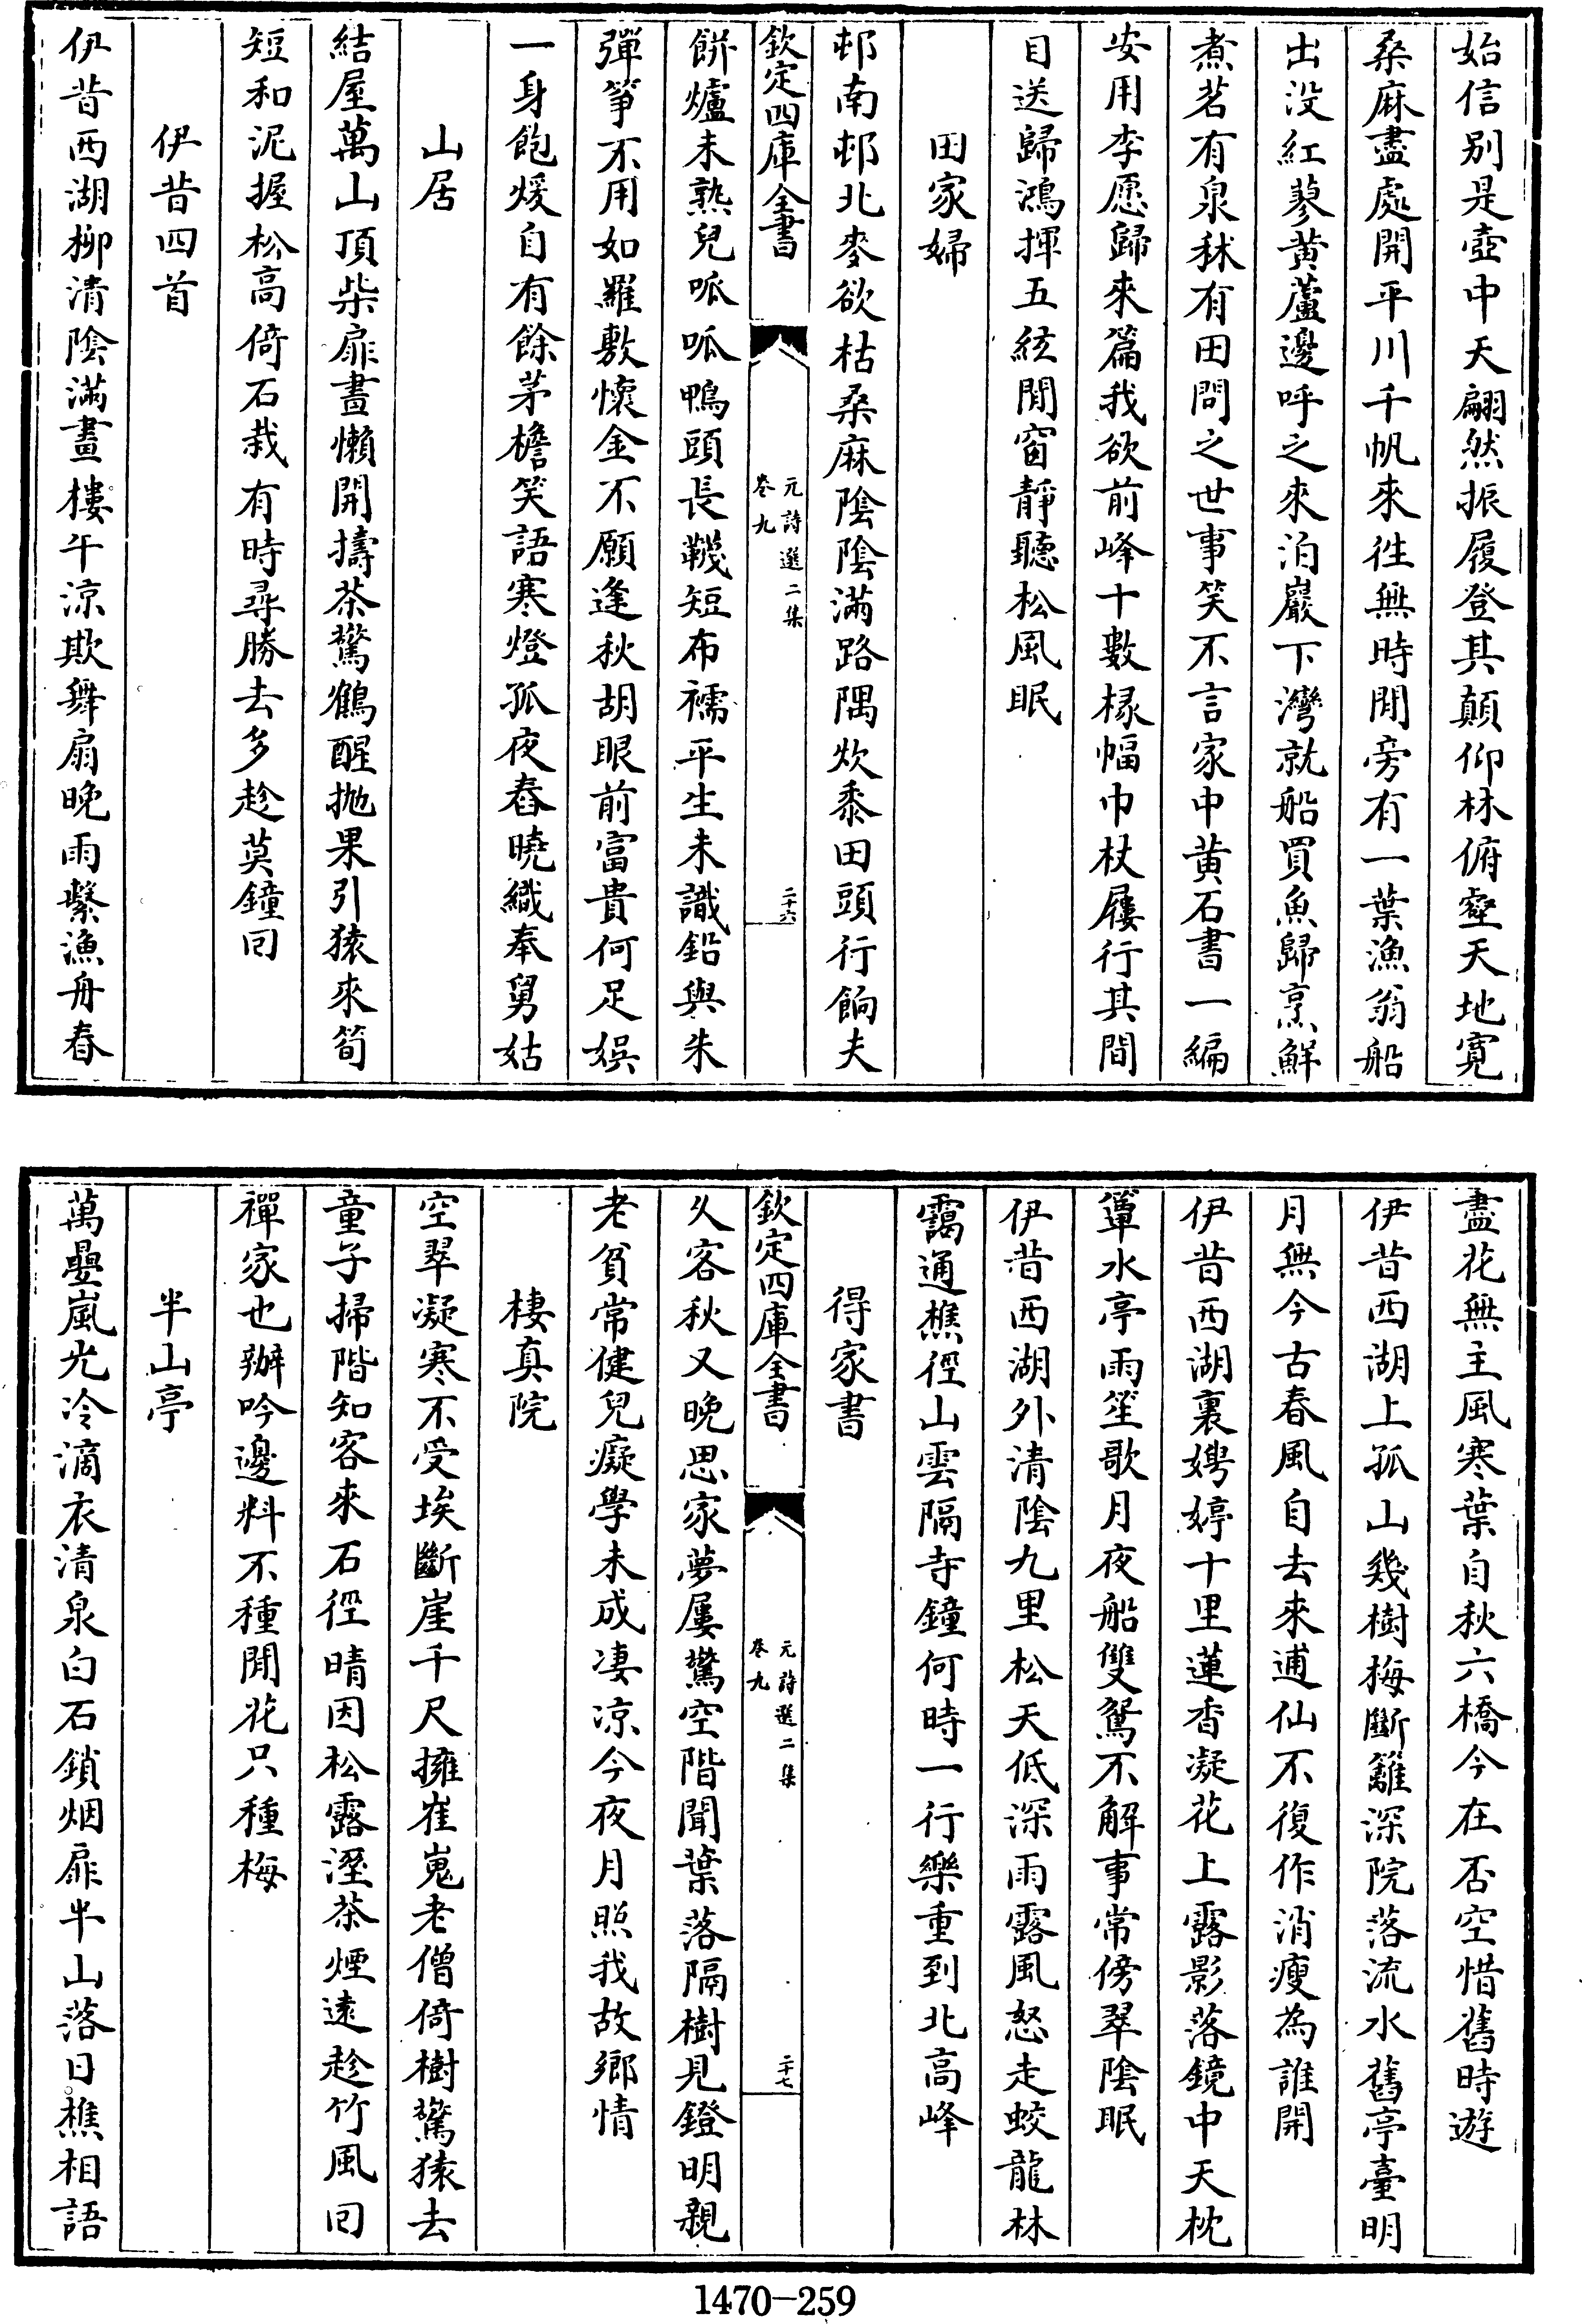 始信别是壺中天翩然振履登其顛仰林俯壑天地寛
桑麻盡處開平川千帆來徃無時閒旁有一葉漁翁船
出没紅蓼黄蘆邊呼之來泊巖下灣就船買魚歸烹鮮
煮茗有泉秫有田問之世事笑不言家中黄石書一編
安用李愿歸來篇我欲前峰十數椽幅巾杖屨行其間
目送歸鴻揮五絃閒窗靜聽松風眠
田家婦
邨南邨北麥欲枯桑麻陰陰滿路隅炊黍田頭行餉夫
欽定四庫全書
元詩選二集
卷九
二十六
餅爐未熟兒呱呱鴨頭長韈短布襦平生未識鉛與朱
彈箏不用如羅敷懷金不願逢秋胡眼前富貴何足娛
一身飽煖自有餘茅檐笑語寒燈孤夜舂曉織奉舅姑
山居
結屋萬山頂柴扉晝懶開擣茶驚鶴醒抛果引猿來筍
短和泥握松高倚石栽有時尋勝去多趁莫鐘囘
伊昔四首
伊昔西湖柳清陰滿畫樓午涼欺舞扇晚雨繫漁舟春
盡花無主風寒葉自秋六橋今在否空惜舊時遊
伊昔西湖上孤山幾樹梅斷籬深院落流水舊亭臺明
月無今古春風自去來逋仙不復作消瘦為誰開
伊昔西湖裏娉婷十里蓮香凝花上露影落鏡中天枕
簟水亭雨笙歌月夜船雙鴛不解事常傍翠陰眠
伊昔西湖外清陰九里松天低深雨露風怒走蛟龍林
靄通樵徑山雲隔寺鐘何時一行樂重到北高峰
得家書
欽定四庫全書
元詩選二集
卷九
二十七
久客秋又晚思家夢屢驚空階聞葉落隔樹見鐙明親
老貧常健兒癡學未成凄凉今夜月照我故鄉情
棲真院
空翠凝寒不受埃斷崖千尺擁崔嵬老僧倚樹驚猿去
童子掃階知客來石徑晴因松露溼茶煙遠趁竹風囘
禪家也辦吟邊料不種閒花只種梅
半山亭
萬疊嵐光冷滴衣清泉白石鎖烟扉半山落日樵相語
1470-259